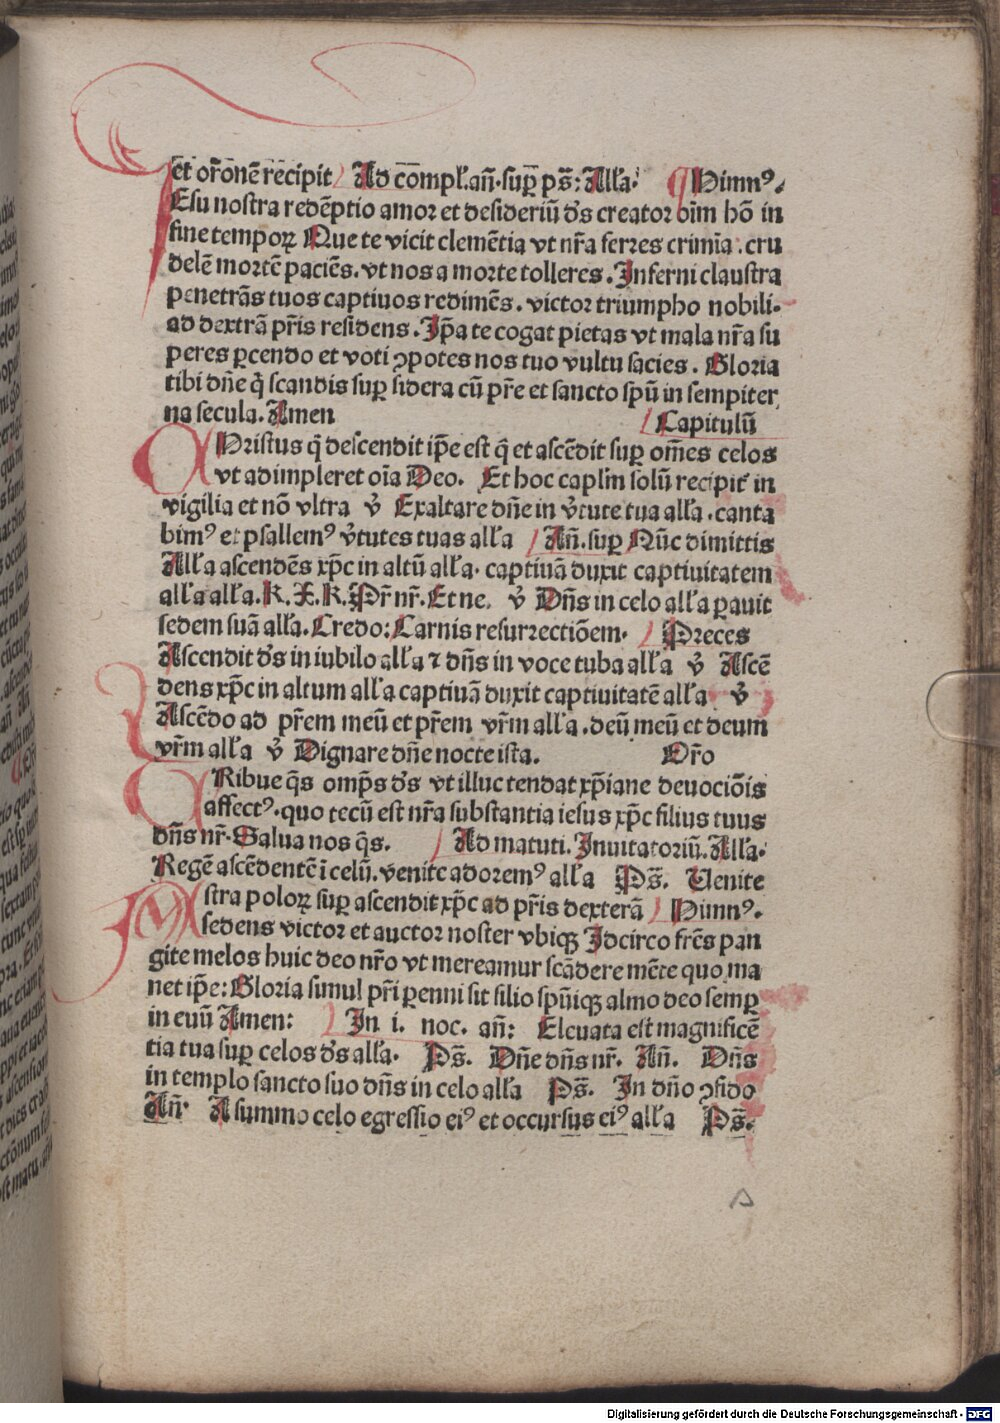 et or̄onē recipit Ad compl̄. an̄. sup̄ ps̄: All̄a. Himnꝰ.
IEsu nostra redēptio amor et desideriū ds̄ creator oīm hō in
fine temporꝝ Que te vicit clemētia vt nr̄a ferres crimīa . cru
delē mortē paciēs. vt nos a morte tolleres. Inferni claustra
penetrās tuos captiuos redimēs. victor triumpho nobili.
ad dextrā pr̄is residens. Ip̄a te cogat pietas vt mala nr̄a su
peres ꝑcendo et voti ꝯpotes nos tuo vultu sacies. Gloria
tibi dn̄e q̄ scandis sup̄ sidera cū pr̄e et sancto sp̄ū in sempiter
na secula. Amen Capitulū
CHristus q̄ descendit ip̄e est q̄ et ascēdit sup̄ om̄es celos
vt adimpleret oīa Deo. Et hoc caplīn solū recipit in
vigilia et nō vltra v̄ Exaltare dn̄e in v̄tute tua all̄a . canta
bimꝰ et psallemꝰ v̄tutes tuas all̄a An̄. sup̄ Nūc dimittis
All̄a ascendēs xp̄c in altū all̄a. captiuā duxit captiuitatem
all̄a all̄a. K. X. K. Pr̄ nr̄. Et ne. v̄ Dn̄s in celo all̄a ꝑauit
sedem suā all̄a. Credo: Carnis resurrectiōem. Preces
Ascendit ds̄ in iubilo all̄a ⁊ dn̄s in voce tuba all̄a v̄ Ascē
dens xp̄c in altum all̄a captiuā duxit captiuitatē all̄a v̄
Ascēdo ad pr̄em meū et pr̄em vr̄m all̄a . deū meū et deum
vr̄m all̄a v̄ Dignare dn̄e nocte ista. Or̄o
TRibue q̄s omp̄s ds̄ vt illuc tendat xp̄iane deuociōis
affectꝰ. quo tecū est nr̄a substantia iesus xp̄c filius tuus
dn̄s nr̄. Salua nos q̄s. Ad matuti. Inuitatoriū. All̄a.
Regē ascēdentē ī celū. venite adoremꝰ all̄a Ps̄. Uenite
Astra polorꝝ sup̄ ascendit xp̄c ad pr̄is dexterā Himnꝰ.
sedens victor et auctor noster vbiqꝫ Idcirco fr̄es pan
gite melos huic deo nr̄o vt mereamur scādere mēte quo ma
net ip̄e: Gloria simul pr̄i ꝑenni sit filio sp̄ūiqꝫ almo deo semp̄
in euū Amen: In i. noc. an̄: Eleuata est magnificē
tia tua sup̄ celos ds̄ all̄a. Ps̄. Dn̄e dn̄s nr̄. An̄. Dn̄s
in templo sancto suo dn̄s in celo all̄a Ps̄. In dn̄o ꝯfido
An̄. A summo celo egressio eiꝰ et occursus eiꝰ all̄a Ps̄.
Digitalisierung gefördert durch die Deutsche Forschungsgemeinschaft - DFG